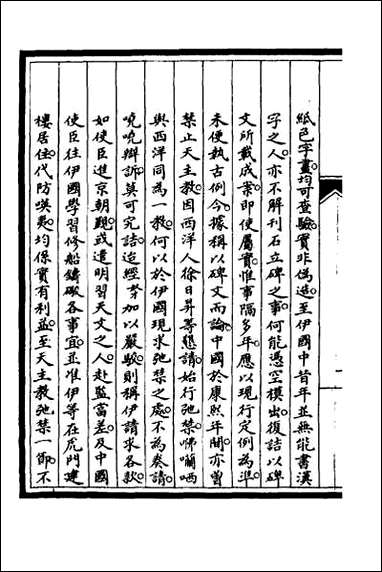 紙色字畫均可查驗實非偽造至伊國中昔年並無能書漢
字之人亦不解刊石立碑之事何能憑空模出復詰以碑
文所載成案即使屬實惟事隔多年應以現行定例為準
未便執古例今據稱以碑文而論中國於康熙年間亦曾
禁止天主教因西洋人徐日昇等懇請始行弛禁咈囒哂
與西洋同為一教何以於伊國現求弛禁之處不為奏請
嘵嘵辯訴莫可究詰迨經努加以嚴駁則稱伊請求各款
如使臣進京朝覲或遣明習天文之人赴監當差及中國
使臣往伊國學習修船鑄礮各事宜並准伊等在虎門建
樓居住代防𠸄夷均係實有利益至天主教弛禁一節不